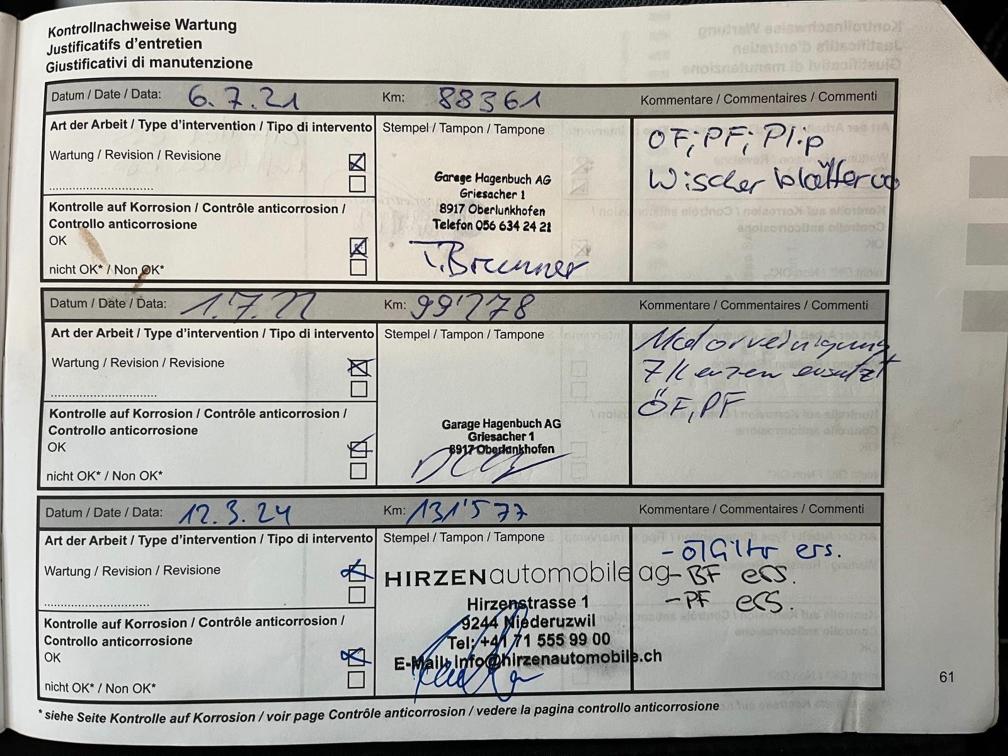 Kontrollnachweise Wartung
Justificatifs d'entretien
Giustificativi di manutenzione
Datum / Date / Data: 6.7.21 Km: 88361 Kommentare / Commentaires / Commenti
Art der Arbeit / Type d'intervention / Tipo di intervento Stempel / Tampon / Tampone OF; PF; Pl.p
Wartung / Revision / Revisione Wischerblätter
Garage Hagenbuch AG
Griesacher 1
8917 Oberlunkhofen
Telefon 056 634 24 21
Kontrolle auf Korrosion / Contrôle anticorrosion /
Controllo anticorrosione
OK
T.Brunner
nicht OK* / Non OK*
Datum / Date / Data: 1.7.22 Km: 99'278 Kommentare / Commentaires / Commenti
Art der Arbeit / Type d'intervention / Tipo di intervento Stempel / Tampon / Tampone Motorreinigung
Wartung / Revision / Revisione ersetzt
ÖF, PF
Kontrolle auf Korrosion / Contrôle anticorrosion /
Controllo anticorrosione
Garage Hagenbuch AG
Griesacher 1
8917 Oberlunkhofen
OK
nicht OK* / Non OK*
Datum / Date / Data: 12.3.24 Km: 131'577 Kommentare / Commentaires / Commenti
Art der Arbeit / Type d'intervention / Tipo di intervento Stempel / Tampon / Tampone - ölfilter ers.
Wartung / Revision / Revisione HIRZENautomobile ag - BF ers.
- PF ers.
Hirzenstrasse 1
9244 Niederuzwil
Tel: +41 71 555 99 00
E-Mail: info@hirzenautomobile.ch
Kontrolle auf Korrosion / Contrôle anticorrosion /
Controllo anticorrosione
OK
nicht OK* / Non OK*
61
* siehe Seite Kontrolle auf Korrosion / voir page Contrôle anticorrosion / vedere la pagina controllo anticorrosione